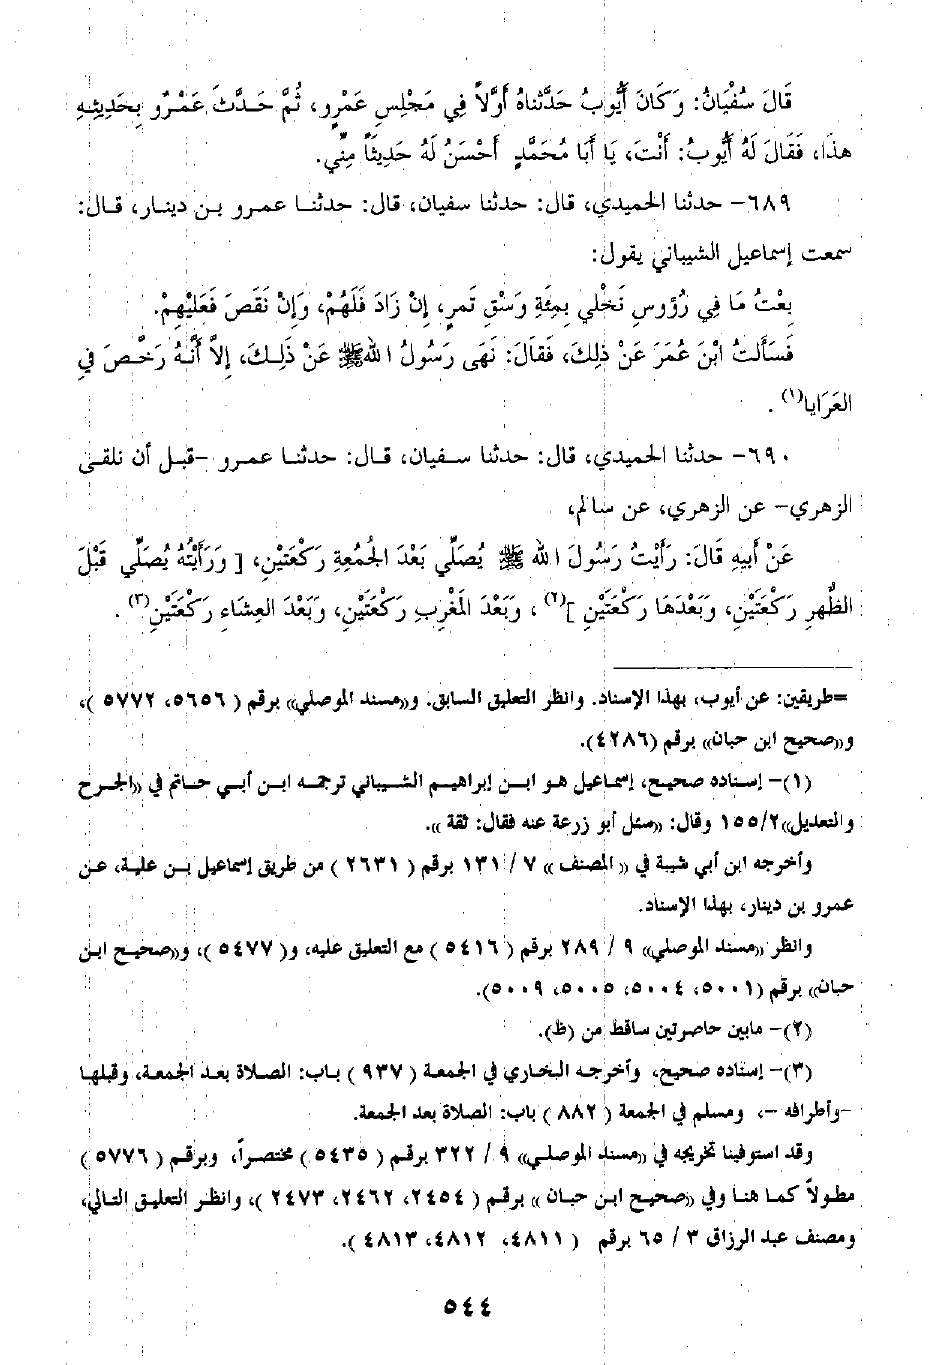 قَالَ سُفْيَانُ: وَكَانَ أَيُّوبُ حَدَّثَنَاهُ أَوَّلاً فِي مَجْلِسِ عَمْرٍو، ثُمَّ حَدَّثَ عَمْرٌو بِحَدِيثِهِ
هذَا، فَقَالَ لَهُ أَيُّوبُ: أَنْتَ، يَا أَبَا مُحَمَّدٍ أَحْسَنُ لَهُ حَدِيثاً مِنِّي.
٦٨٩- حدثنا الحميدي، قال: حدثنا سفيان، قال: حدثنا عمرو بن دينار، قال:
سمعت إسماعيل الشيباني يقول:
بِعْتُ مَا فِي رُؤُوسِ نَخْلِي بِمِئَةِ وَسْقِ تَمرٍ، إِنْ زَادَ فَلَهُمْ، وَإِنْ نَقَصَ فَعَلَيْهِمْ.
فَسَأَلتُ ابْنَ عُمَرَ عَنْ ذلِكَ، فَقَالَ: نَهَى رَسُولُ اللهِ ﷺ عَنْ ذَلِكَ، إِلاَّ أَنَّهُ رَخَّصَ فِي
العَرَايا(١) .
٦٩٠- حدثنا الحميدي، قال: حدثنا سفيان، قال: حدثنا عمرو -قبل أن نلقى
الزهري- عن الزهري، عن سالم،
عَنْ أَبِيهِ قَالَ: رَأَيْتُ رَسُولَ اللهِ ﷺ يُصَلِّي بَعْدَ الجُمعَةِ رَكْعَتَيْنِ، [ وَرَأَيْتُهُ يُصَلِّي قَبْلَ
الظُّهرِ رَكْعَتَيْنِ، وَبَعْدَهَا رَكْعَتَيْنِ ](٢) ، وَبَعْدَ المَغْرِبِ رَكْعَتَيْنِ، وَبَعْدَ العِشَاءِ رَكْعَتَيْنِ(٣) .
=طريقين: عن أيوب، بهذا الإسناد. وانظر التعليق السابق. و«مسند الموصلي» برقم ( ٥٦٥٦، ٥٧٧٢ )،
و«صحيح ابن حبان» برقم (٤٢٨٦).
(١)- إسناده صحيح، إسماعيل هو ابن إبراهيم الشيباني ترجمه ابن أبي حاتم في «الجرح
والتعديل»١٥٥/٢ وقال: «سئل أبو زرعة عنه فقال: ثقة ».
وأخرجه ابن أبي شيبة في « المصنف » ٧ /١٣١ برقم ( ٢٦٣١ ) من طريق إسماعيل بن علية، عن
عمرو بن دينار، بهذا الإسناد.
وانظر «مسند الموصلي» ٩ / ٢٨٩ برقم ( ٥٤١٦ ) مع التعليق عليه، و( ٥٤٧٧ )، و«صحيح ابن
حبان» برقم (٥٠٠١، ٥٠٠٤، ٥٠٠٥، ٥٠٠٩).
(٢)- مابين حاصرتين ساقط من (ظ).
(٣)- إسناده صحيح، وأخرجه البخاري في الجمعة ( ٩٣٧ ) باب: الصلاة بعد الجمعة، وقبلها
-وأطرافه -، ومسلم في الجمعة ( ٨٨٢ ) باب: الصلاة بعد الجمعة.
وقد استوفينا تخريجه في «مسند الموصلي» ٩ / ٣٢٢ برقم ( ٥٤٣٥ ) مختصراً، وبرقم ( ٥٧٧٦ )
مطولاً كما هنا وفي «صحيح ابن حبان » برقم ( ٢٤٥٤، ٢٤٦٢، ٢٤٧٣ )، وانظر التعليق التالي،
ومصنف عبد الرزاق ٣ / ٦٥ برقم ( ٤٨١١، ٤٨١٢، ٤٨١٣ ).
٥٤٤